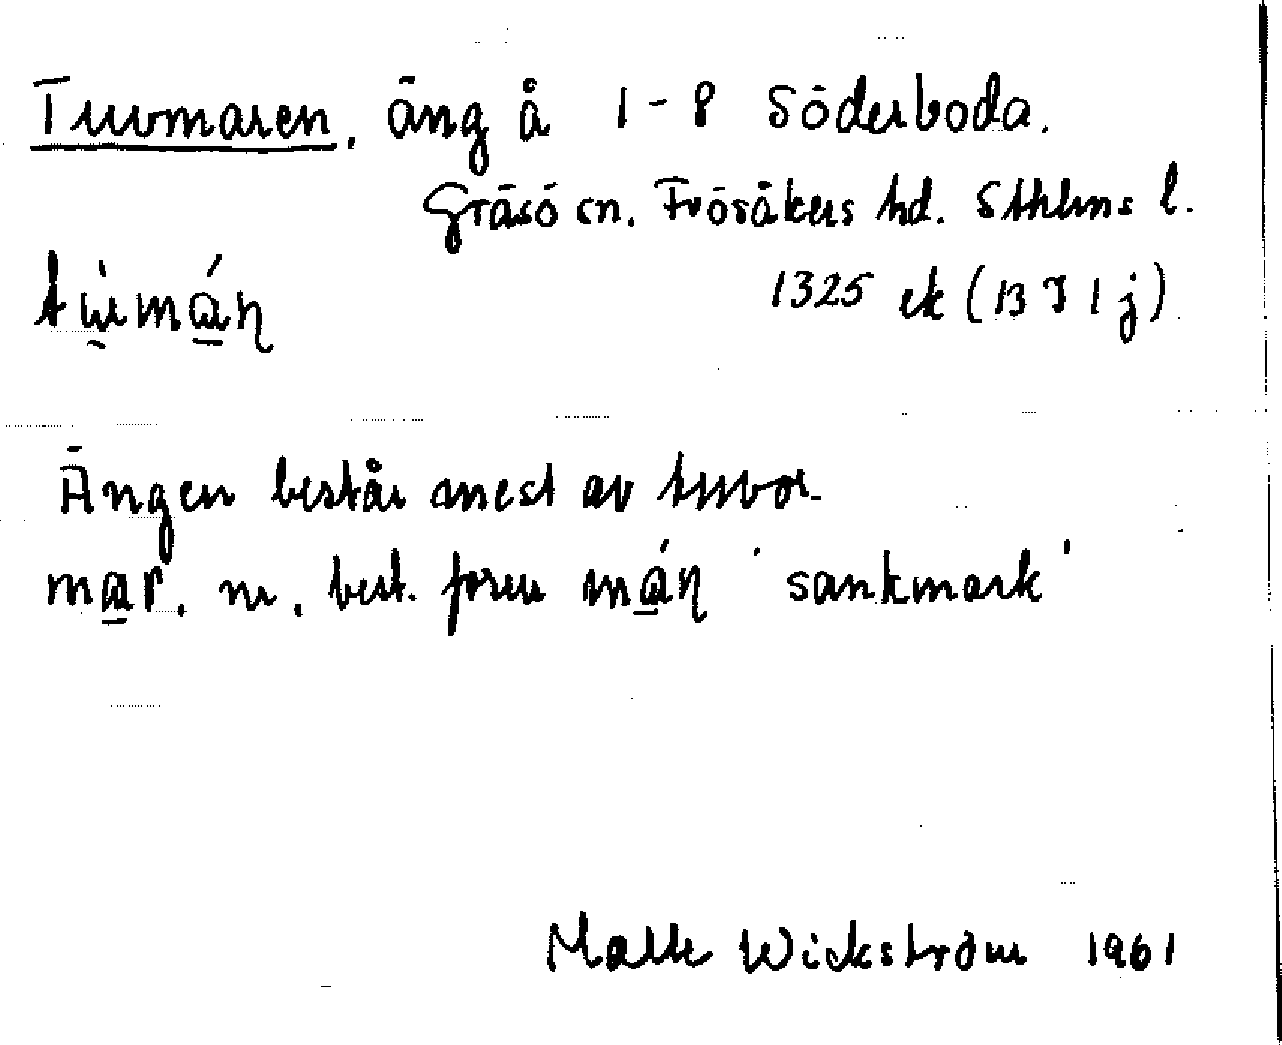 Tuvmaren, äng å 1-8 Söderboda.
Gräsö sn. Frösåkers hd. Sthlms l.
1325 ek (13 I 1 j)
Ängen består mest av tuvor.
mar, m, best. form má̱ṇ 'sankmark'
Malte Wickström 1961